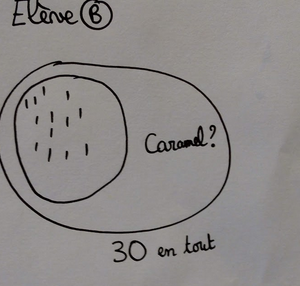 Elève B
Caramel?
30 en tout